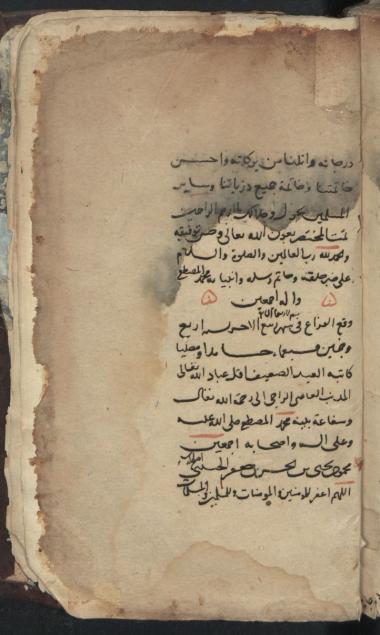 درجاته وانلنا من بركاته واحسن
خاتمتنا وخاتمة جميع ذرياتنا وساير
المسلمين بحولك وجلالك يا ارحم الراحمين
تمت المختصر بعون الله تعالى وحسن توفيقه
والحمد لله رب العالمين والصلوة والسلام
على خير خلقه وخاتم رسله وانبيائه محمد المصطفى
واله اجمعين
وقع الفراغ في شهر ربيع الاخر سنه اربع
وخمسين حامدا ومصليا
كاتبه العبد الضعيف اقل عباد الله تعالى
المذنب العاصي الراجي الى رحمة الله تعالى
وشفاعة نبيه محمد المصطفى صلى الله عليه
وعلى اله واصحابه اجمعين
يحيى بن جعفر
اللهم اغفر للمؤمنين والمؤمنات وللمسلمين والمسلمات